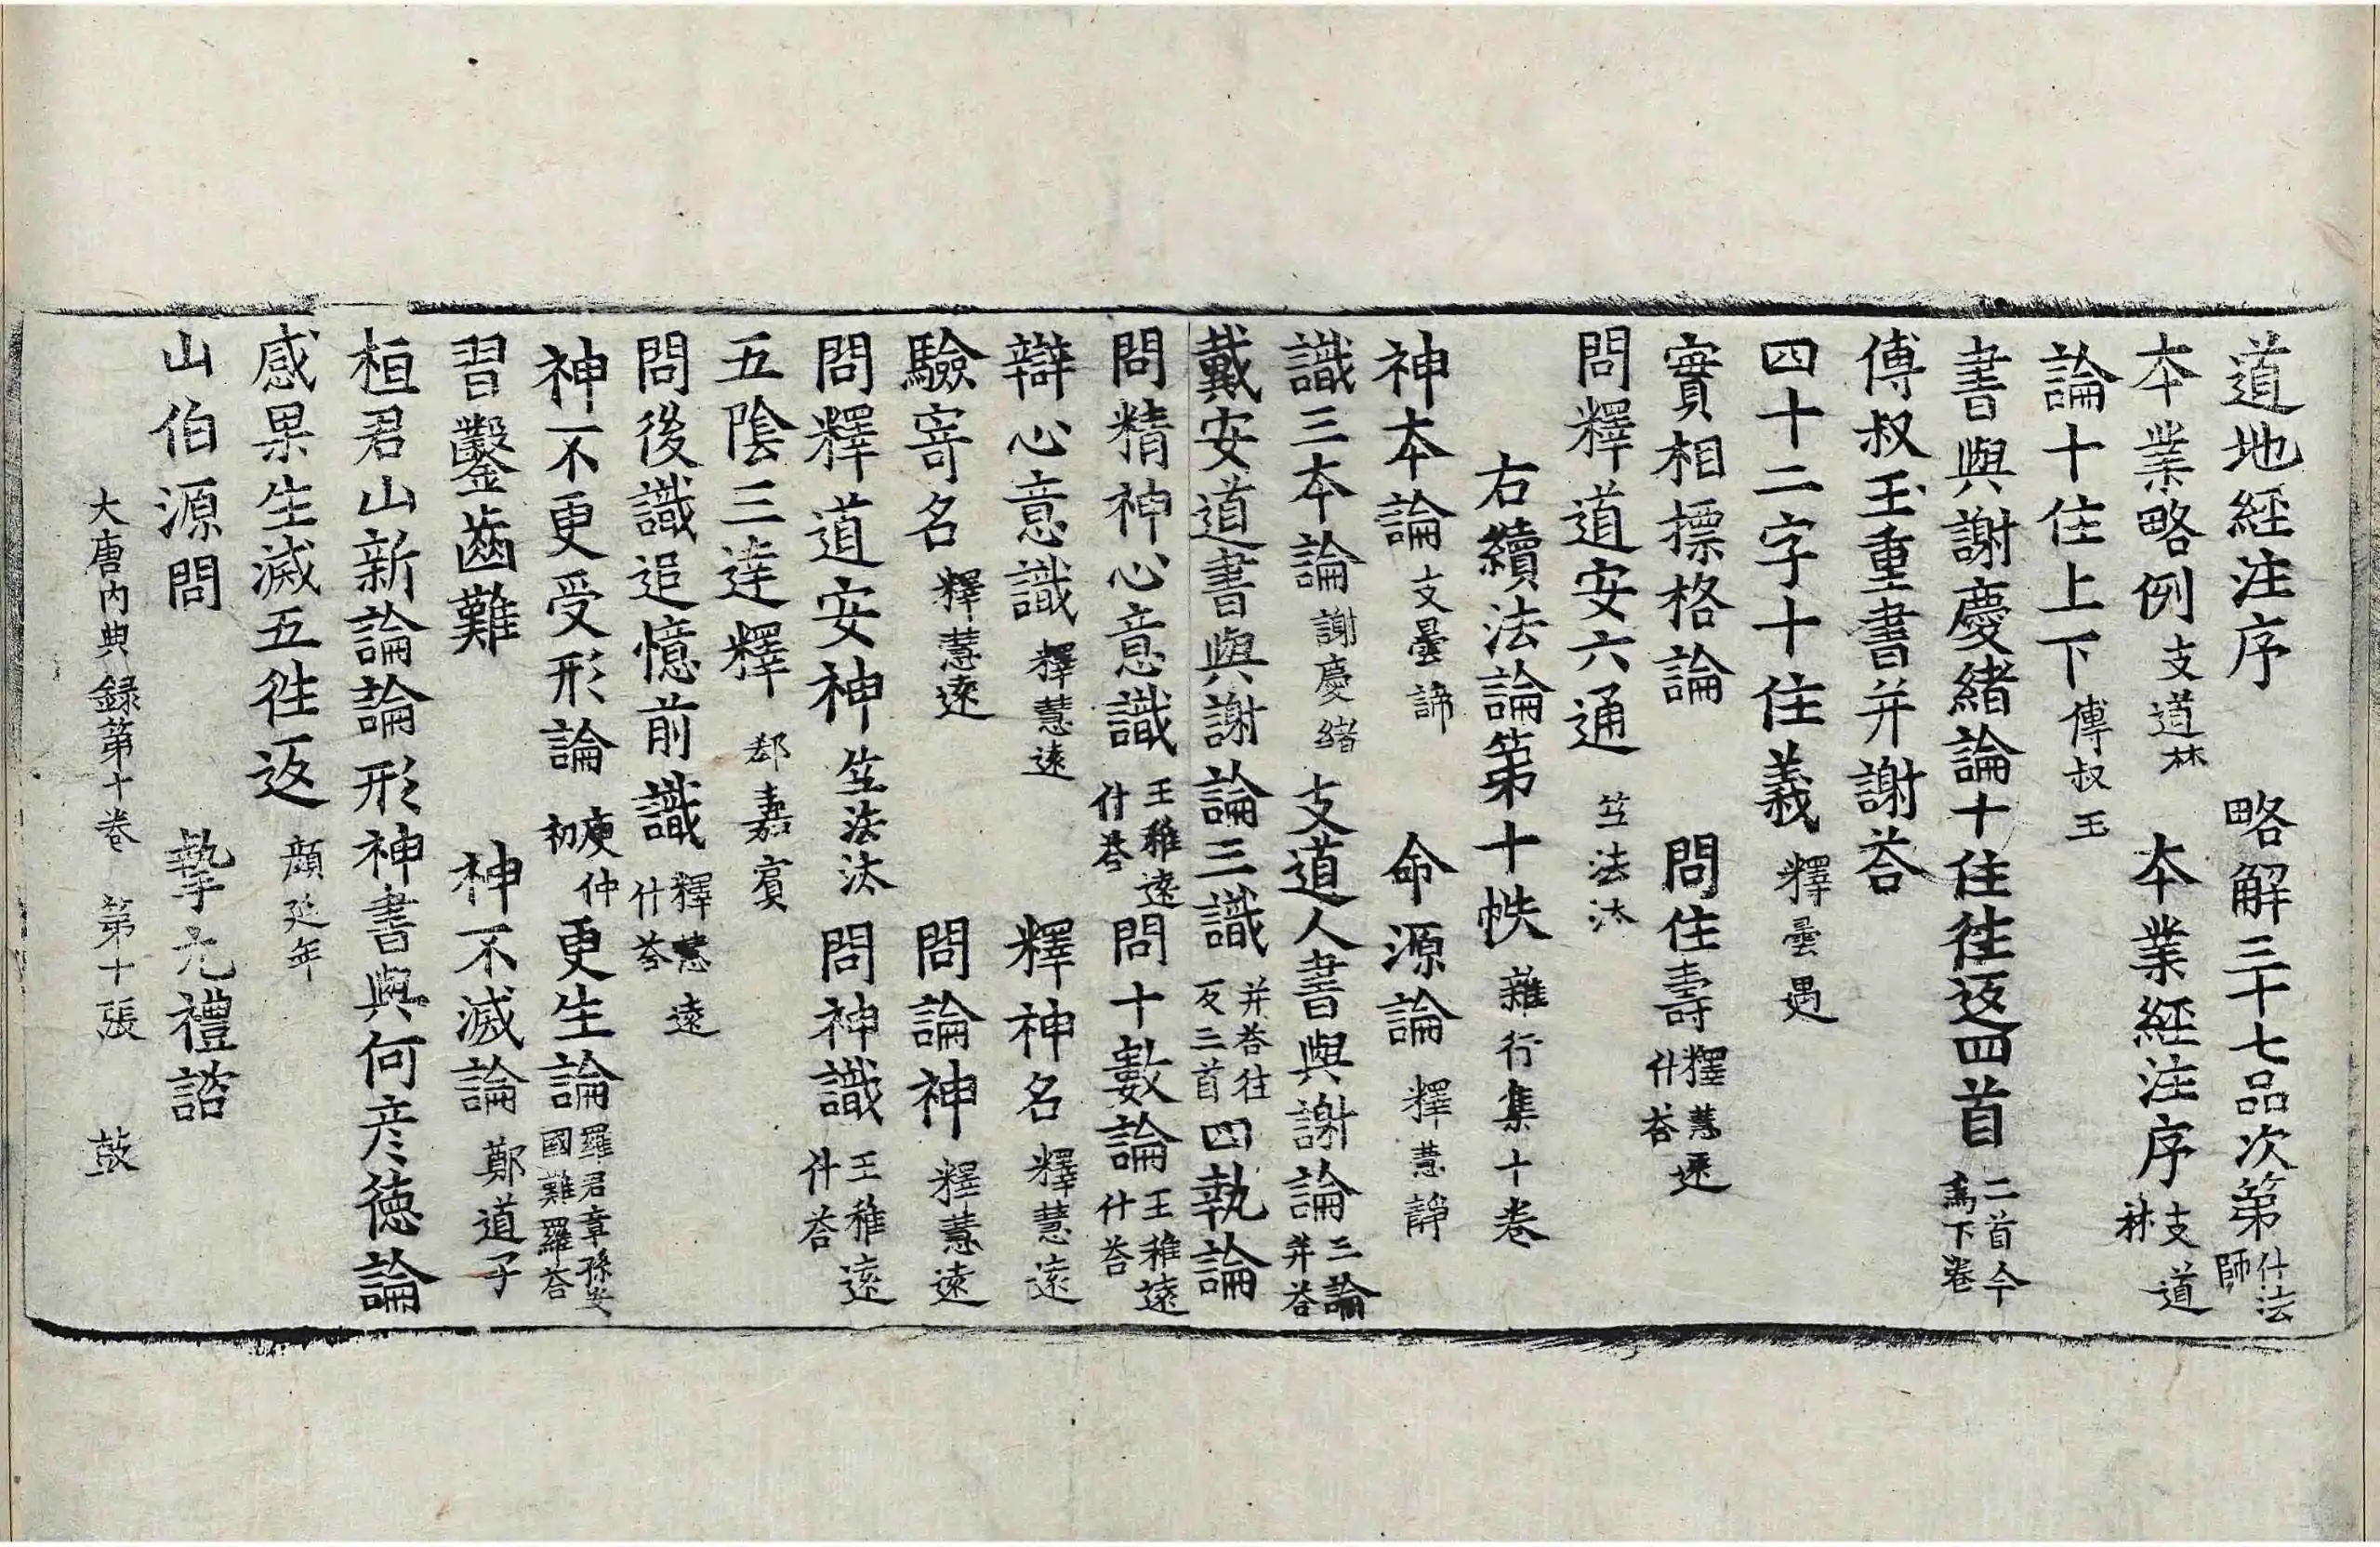 道地經注序 略解三十七品次第 什法師
本業略例 支道林 本業經注序 支道林
論十住上下 傅叔玉
書與謝慶緒論十住往返四首 二首今爲下卷
傅叔玉重書并謝荅
四十二字十住義 釋曇遇
實相摽格論 問住壽 釋慧遠什荅
問釋道安六通 竺法汰
右續法論第十帙 雜行集十卷
神本論 支曇諦 命源論 釋慧静
識三本論 謝慶緒 支道人書與謝論三論并荅
戴安道書與謝論三識 并荅往反三首 四執論
問精神心意識 王稚遠什荅 問十數論 王稚遠什荅
辯心意識 釋慧遠 釋神名 釋慧遠
驗寄名 釋慧遠 問論神 釋慧遠
問釋道安神 竺法汰 問神識 王稚遠什荅
五陰三達釋 郄嘉賓
問後識追憶前識 釋慧遠什荅
神不更受形論 庾仲初 更生論 羅君章孫安國難羅荅
習鑿齒難 神不滅論 鄭道子
桓君山新論論形神書與何彦德論
感果生滅五往返 顔延年
山伯源問 摯元禮諮
大唐内典録第十卷 第十張 鼓